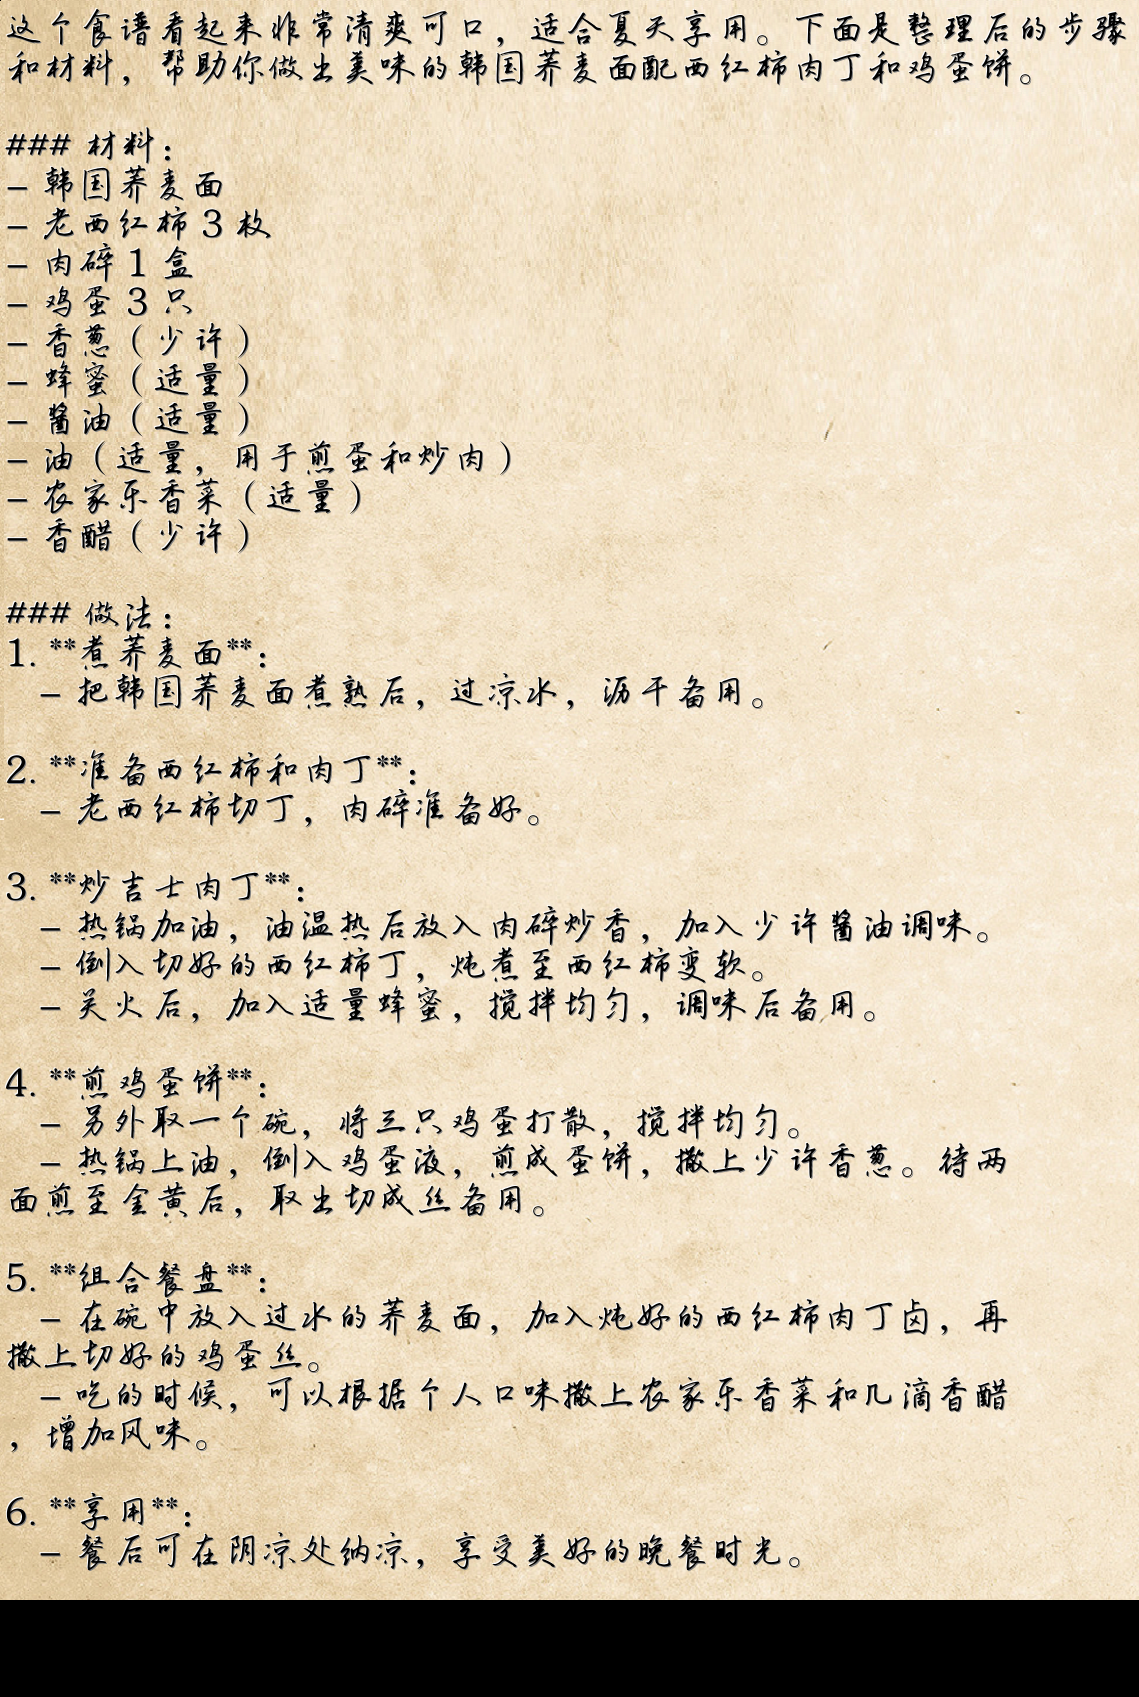 这个食谱看起来非常清爽可口，适合夏天享用。下面是整理后的步骤
和材料，帮助你做出美味的韩国荞麦面配西红柿肉丁和鸡蛋饼。
### 材料：
- 韩国荞麦面
- 老西红柿3枚
- 肉碎1盒
- 鸡蛋3只
- 香葱（少许）
- 蜂蜜（适量）
- 酱油（适量）
- 油（适量，用于煎蛋和炒肉）
- 农家乐香菜（适量）
- 香醋（少许）
### 做法：
1. **煮荞麦面**：
- 把韩国荞麦面煮熟后，过凉水，沥干备用。
2. **准备西红柿和肉丁**：
- 老西红柿切丁，肉碎准备好。
3. **炒吉士肉丁**：
- 热锅加油，油温热后放入肉碎炒香，加入少许酱油调味。
- 倒入切好的西红柿丁，炖煮至西红柿变软。
- 关火后，加入适量蜂蜜，搅拌均匀，调味后备用。
4. **煎鸡蛋饼**：
- 另外取一个碗，将三只鸡蛋打散，搅拌均匀。
- 热锅上油，倒入鸡蛋液，煎成蛋饼，撒上少许香葱。待两
面煎至金黄后，取出切成丝备用。
5. **组合餐盘**：
- 在碗中放入过水的荞麦面，加入炖好的西红柿肉丁卤，再
撒上切好的鸡蛋丝。
- 吃的时候，可以根据个人口味撒上农家乐香菜和几滴香醋
，增加风味。
6. **享用**：
- 餐后可在阴凉处纳凉，享受美好的晚餐时光。